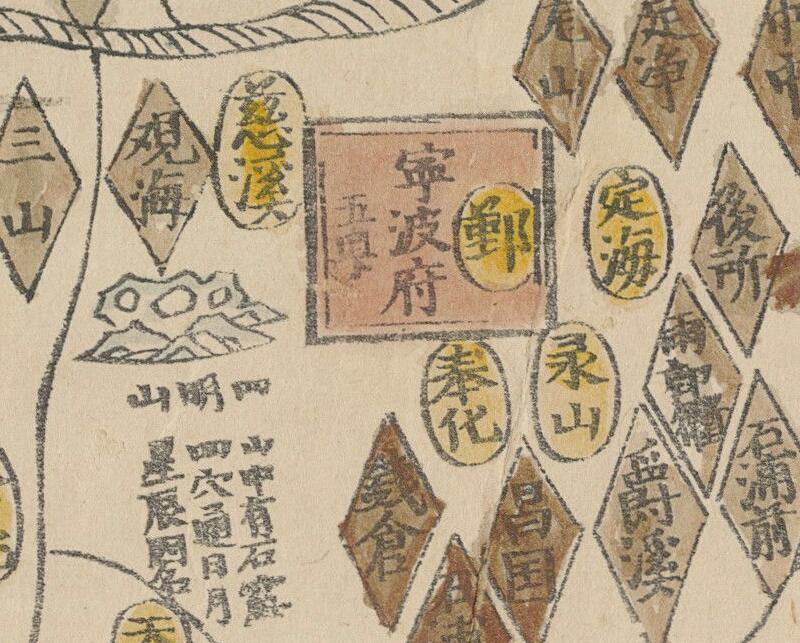 三山
観海
慈溪
寧波府
鄞
定海
後所
奉化
永山
四明山
山中有石窓
四穴通日月
星辰因名
錢倉
昌国
爵溪
石浦前